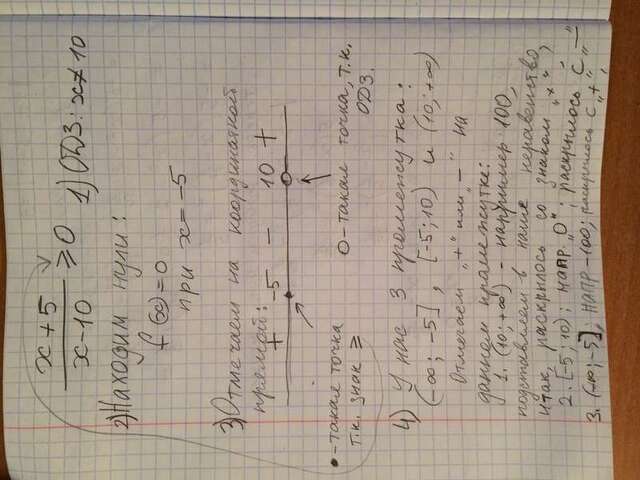 x+5/x-10 ≥ 0 1) ОДЗ: x≠10
2) Находим нули:
f(x)=0
при x=-5
3) Отмечаем на координатной
прямой:
+ -5 - 10 +
•-такая точка
т.к. знак ≥
о-такая точка, т.к.
ОДЗ.
4) У нас 3 промежутка:
(-∞; -5], [-5; 10) и (10; +∞)
Отмечаем „+" или „-" на
данном промежутке:
1. (10; +∞) - например 100,
подставляем в наше неравенство
итак, раскрылось со знаком „+",
2. [-5; 10); напр „0". раскрылось с „-"
3. (-∞; -5], напр -100; раскрылось с „+".